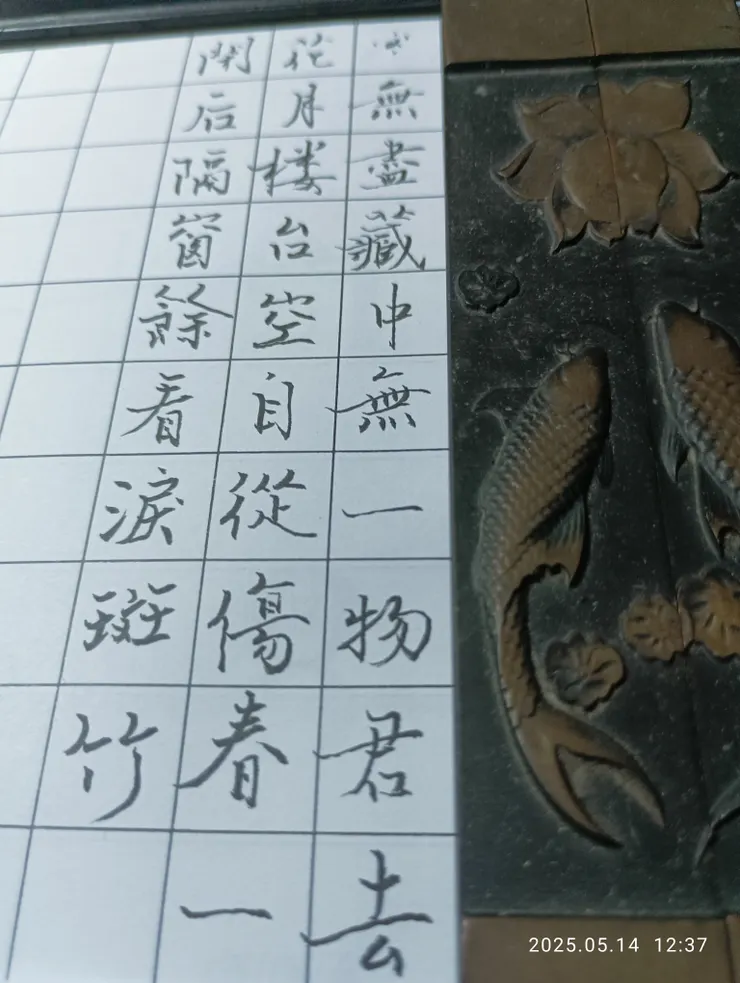 無盡藏中無一物君去
花月楼台空自從傷春一
開后隔窗餘看淚斑竹
2025.05.14 12:37